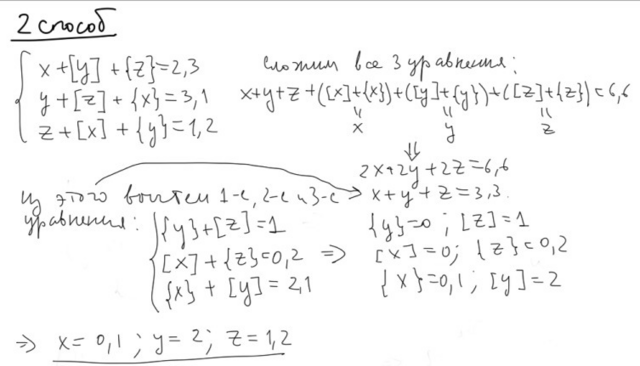 2 способ
x+[y]+{z}=2,3
y+[z]+{x}=3,1
z+[x]+{y}=1,2
сложим все 3 уравнения:
x+y+z+([x]+{x})+([y]+{y})+([z]+{z})=6,6
x y z
⇓
2x+2y+2z=6,6
x+y+z=3,3.
из этого вычтем 1-е, 2-е и 3-е
уравнения:
{y}+[z]=1
[x]+{z}=0,2 ⇒
{x}+[y]=2,1
{y}=0; [z]=1
[x]=0; {z}=0,2
{x}=0,1; [y]=2
⇒ x=0,1; y=2; z=1,2